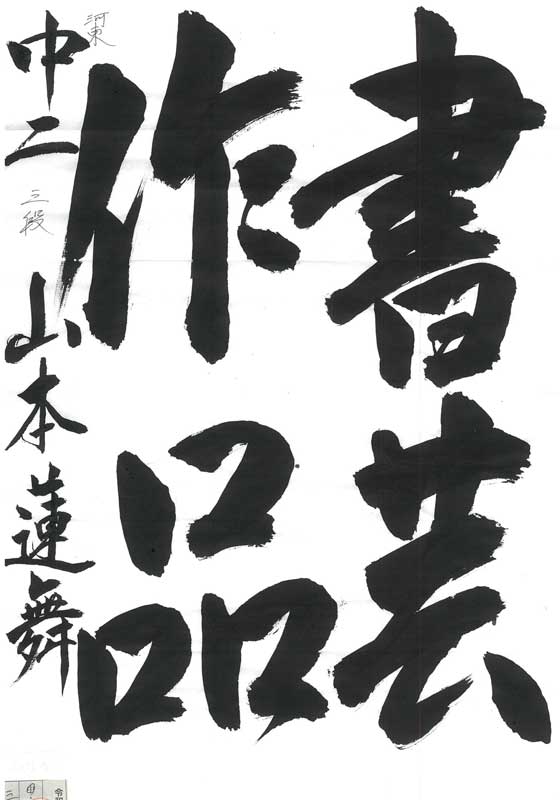 書芸
作品
河東
中二
三段
山本蓮舞